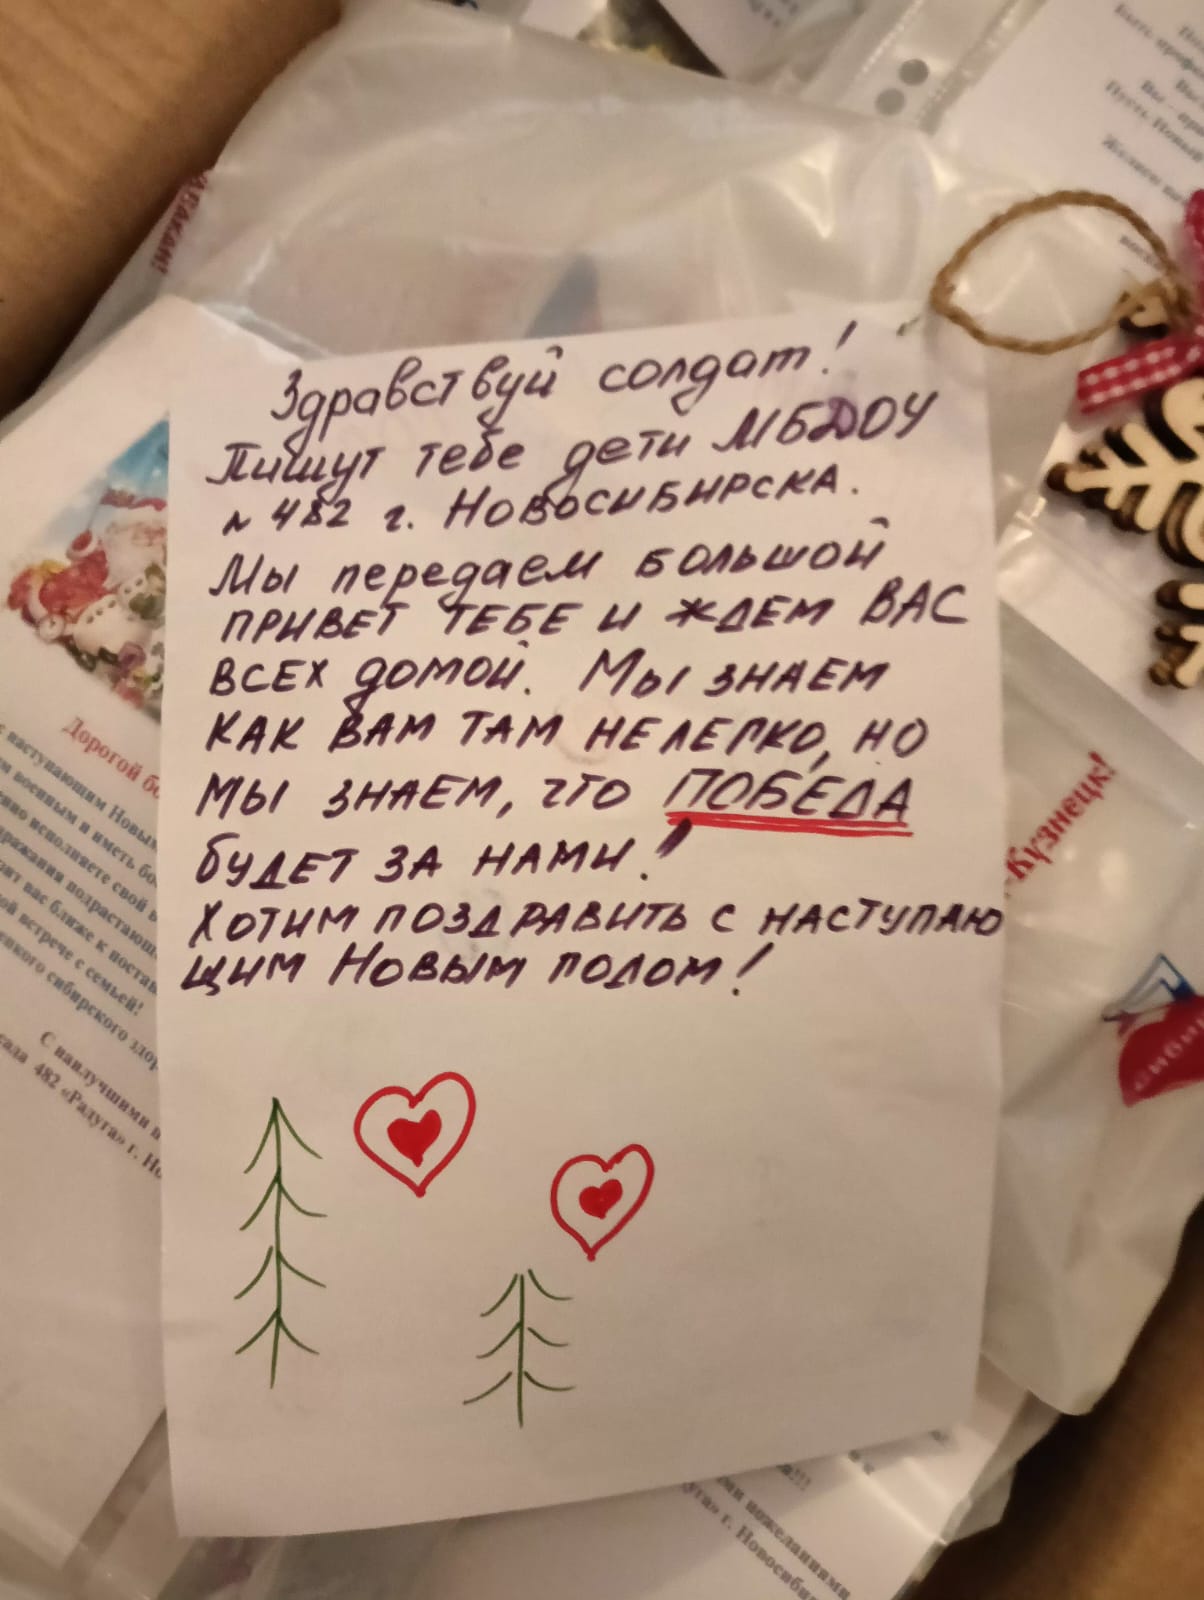 Здравствуй солдат!
Пишут тебе дети МБДОУ
№ 482 г. Новосибирска.
Мы передаем большой
ПРИВЕТ ТЕБЕ И ЖДЕМ ВАС
ВСЕХ домой. Мы ЗНАЕМ
КАК ВАМ ТАМ НЕЛЕГКО, НО
МЫ ЗНАЕМ, ЧТО ПОБЕДА
БУДЕТ ЗА НАМИ!
ХОТИМ ПОЗДРАВИТЬ С НАСТУПАЮ
ЩИМ НОВЫМ ГОДОМ!
АБАКАН!
Дорогой
с наступающим Новым
военным и иметь
исполняете свой
подрастающ
вас ближе к
встрече с семьей!
сибирского
С наилучшими
482 «Радуга» г.
Пусть Новый
Желаем
-Кузнецк!
пожеланиями
г. Новосиби